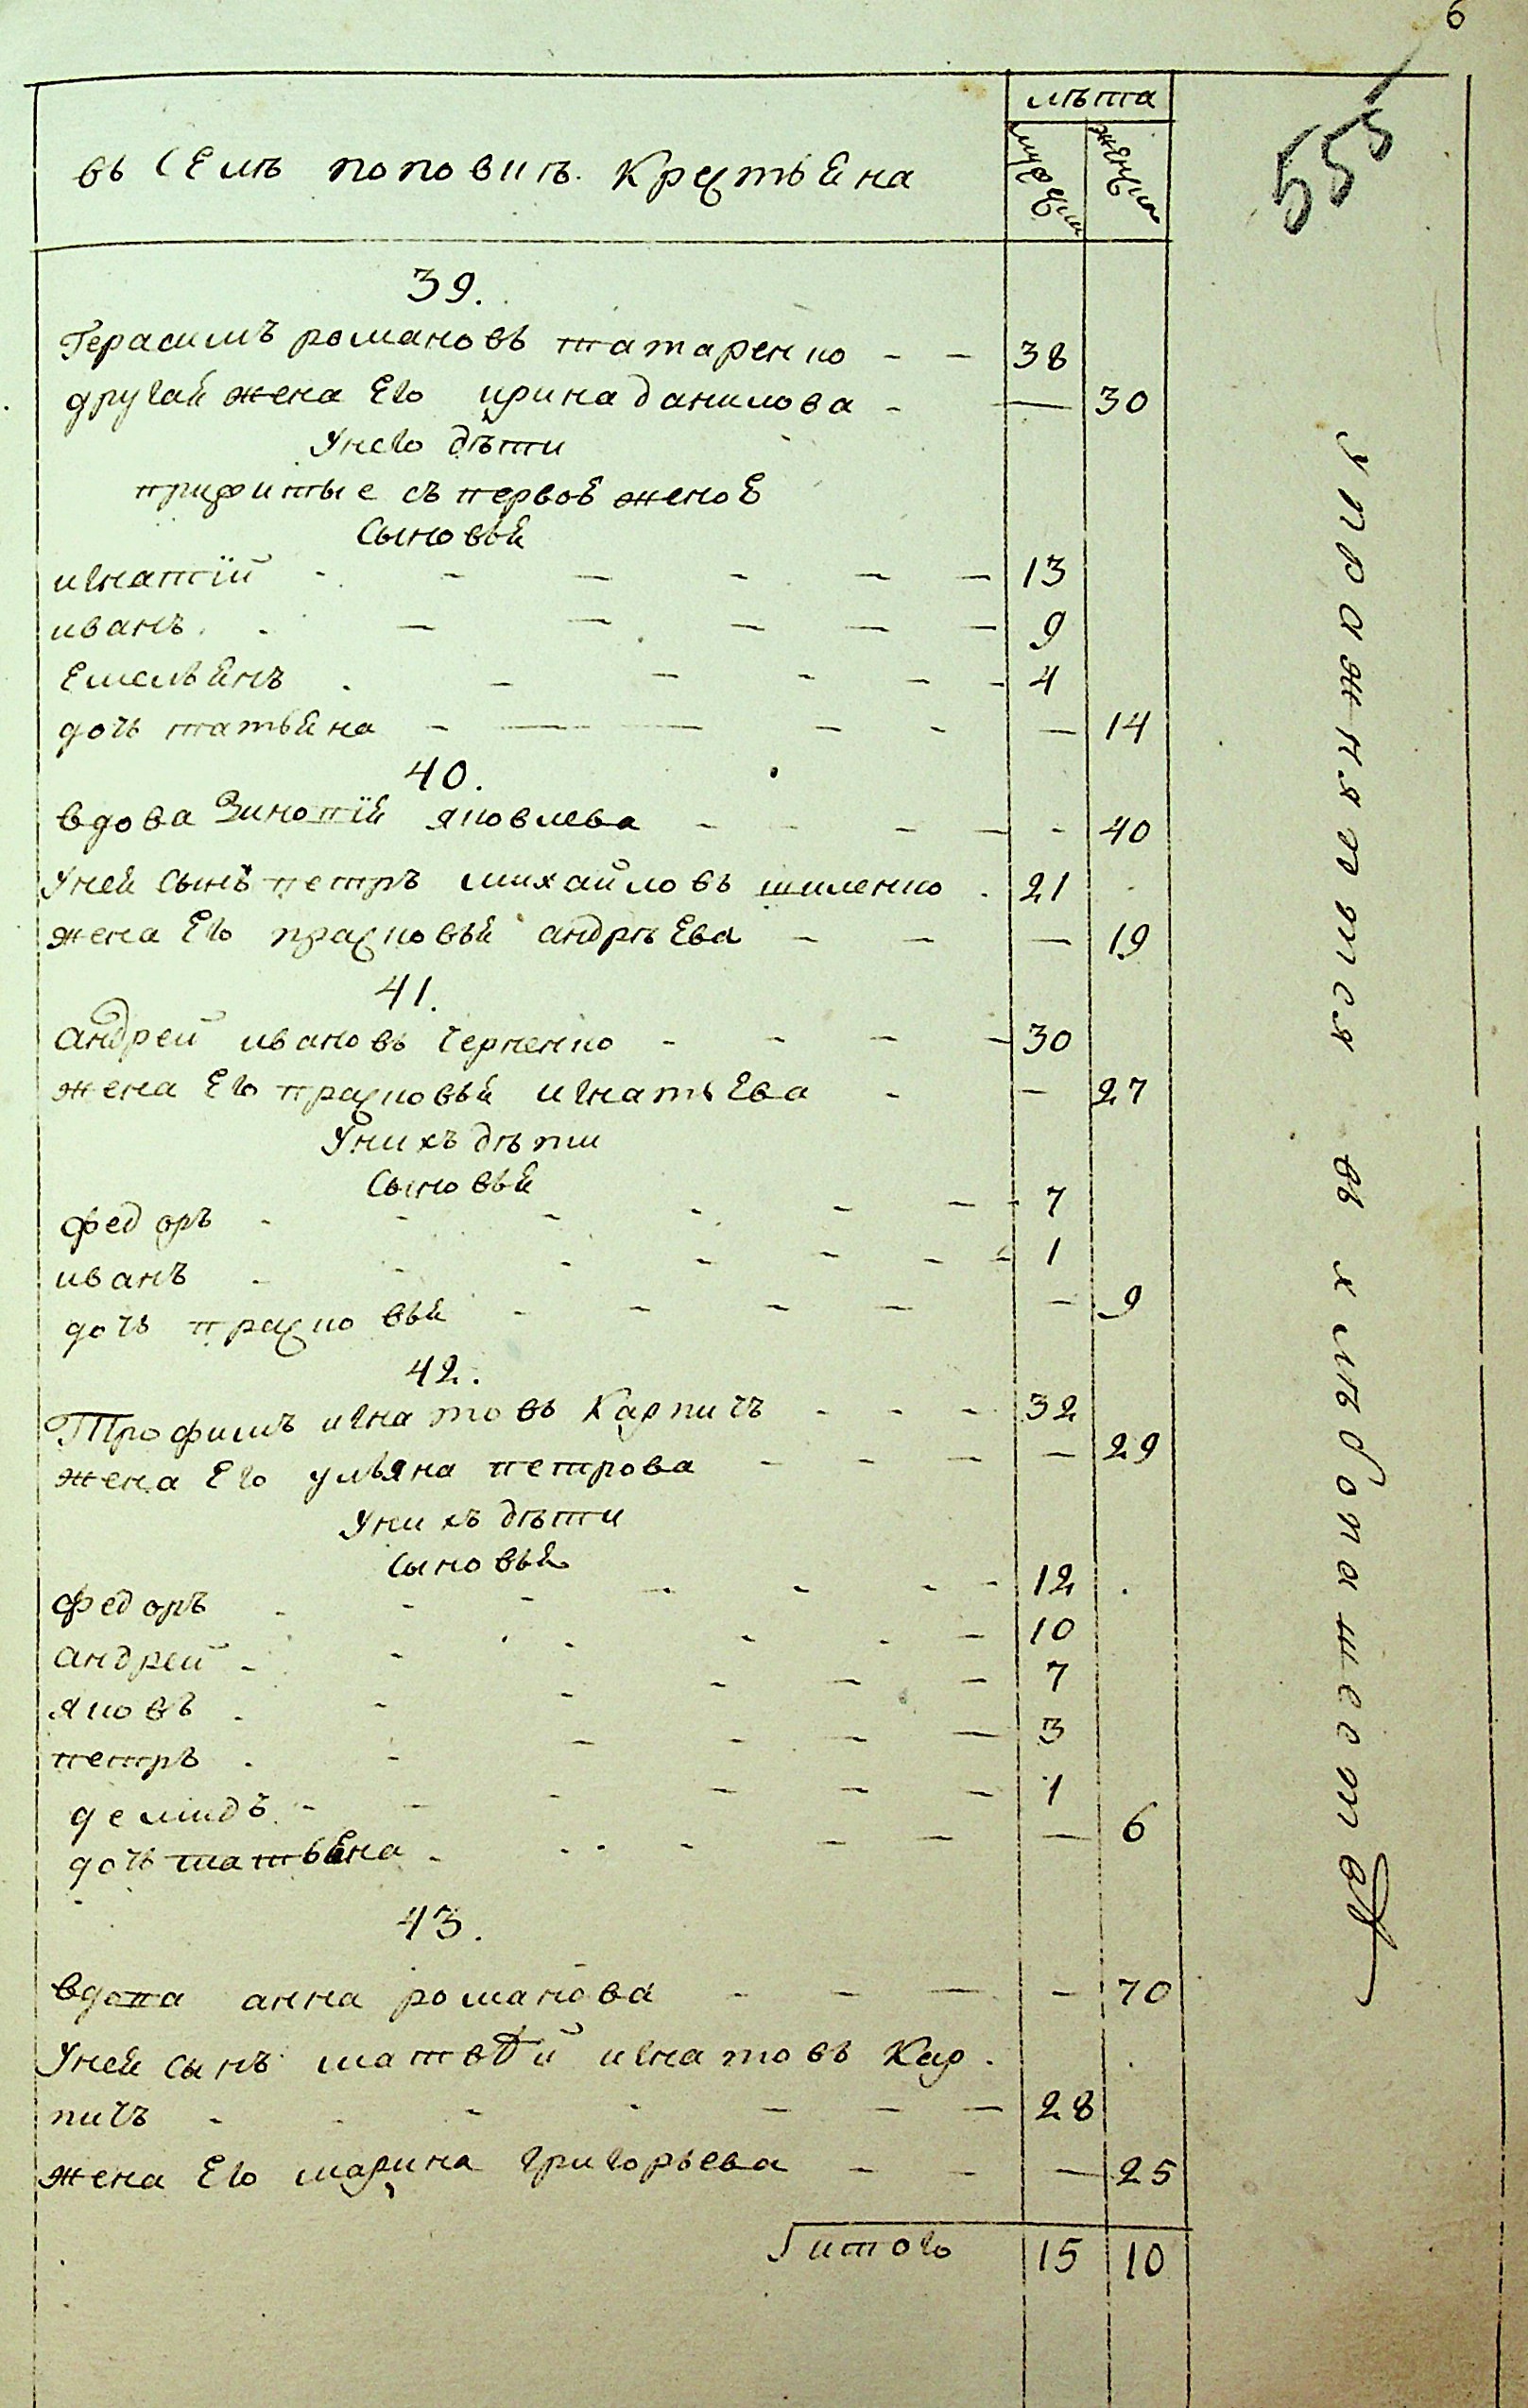 6
555
лѣта
мужеска
женска
въ селѣ поповиѣ. крестьяна
39.
Герасимъ романовъ татаренко - - 38
другая жена Его ирина данилова - — 30
Унего дѣти
прижитые съ первоѣ женоѣ
Сыновья
игнатїй - - - - - - 13
иванъ - - - - - - 9
Емельянъ - - - - - - 4
дочь татьяна - - - - - - 14
40.
вдова Зинопїя яковлева - - - - - 40
Уней сынъ петръ михайловъ шиленко - 21
жена Его прасковья андрѣева - - — 19
41.
андрей ивановъ черненко - - - - 30
жена Его прасковья игнатьева - - 27
Унихъ дѣти
Сыновья
федоръ - - - - - - 7
иванъ - - - - - - - 1
дочь прасковья - - - - - 9
42.
Трофимъ игнатовъ Карпичъ - - - 32
жена Его ульяна петрова - - - — 29
Унихъ дѣти
Сыновья
федоръ - - - - - - - 12
андрей - - - - - - 10
яковъ - - - - - - 7
петръ - - - - - - 3
демидъ - - - - - - 1
дочь татьяна - - - - - — 6
43.
вдова анна романова - - - - 70
Уней сынъ матвѣй игнатовъ Кар-
пичъ - - - - - - - 28
жена Его марина григорьева - - — 25
итого 15 10
упражняетися въ хлѣбопашест